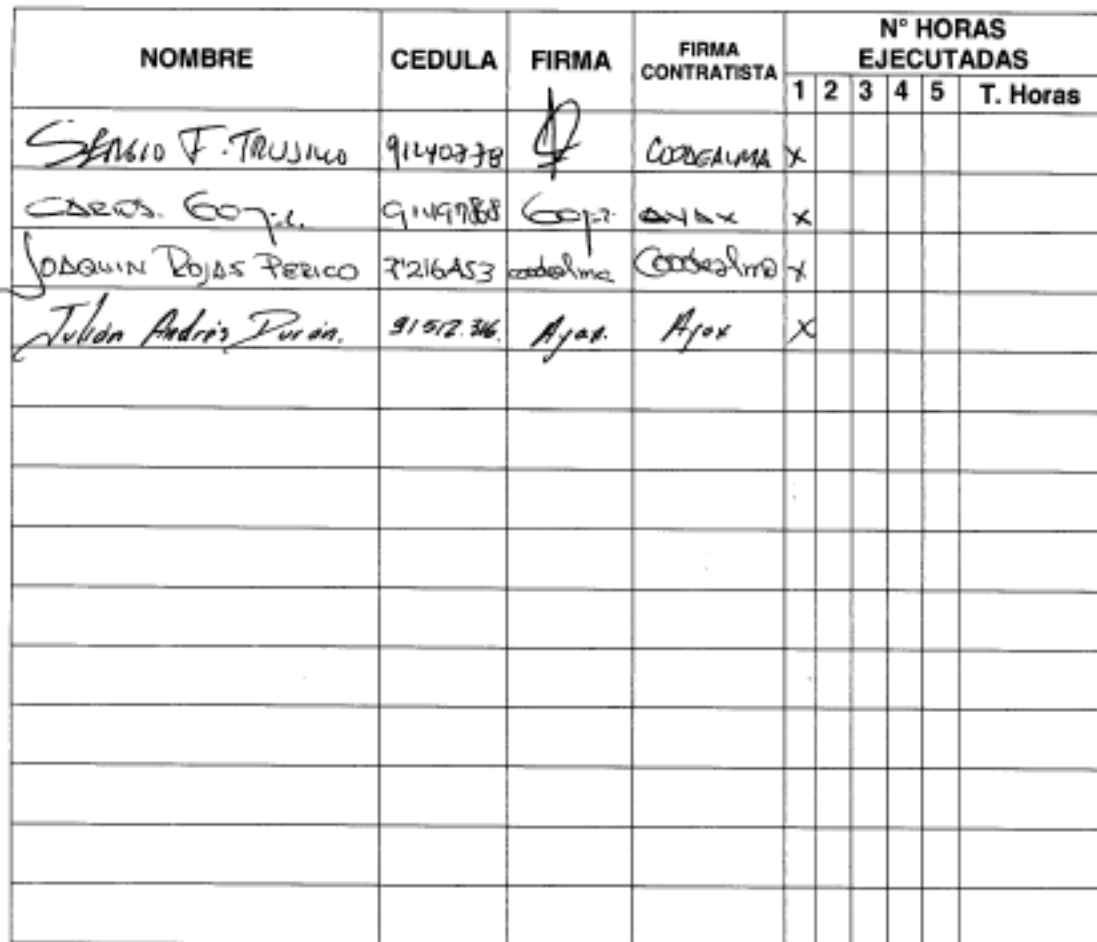 NOMBRE CEDULA FIRMA FIRMA CONTRATISTA N° HORAS EJECUTADAS
1 2 3 4 5 T. Horas
SERGIO F. TRUJILLO 91440778 COODEALMA X
CARLOS. 91497868 AYAX X
JOAQUIN ROJAS PERICO 7'216453 coodealma Coodealma X
Julián Andrés Durán. 91512.316. Ajax. Ajax X